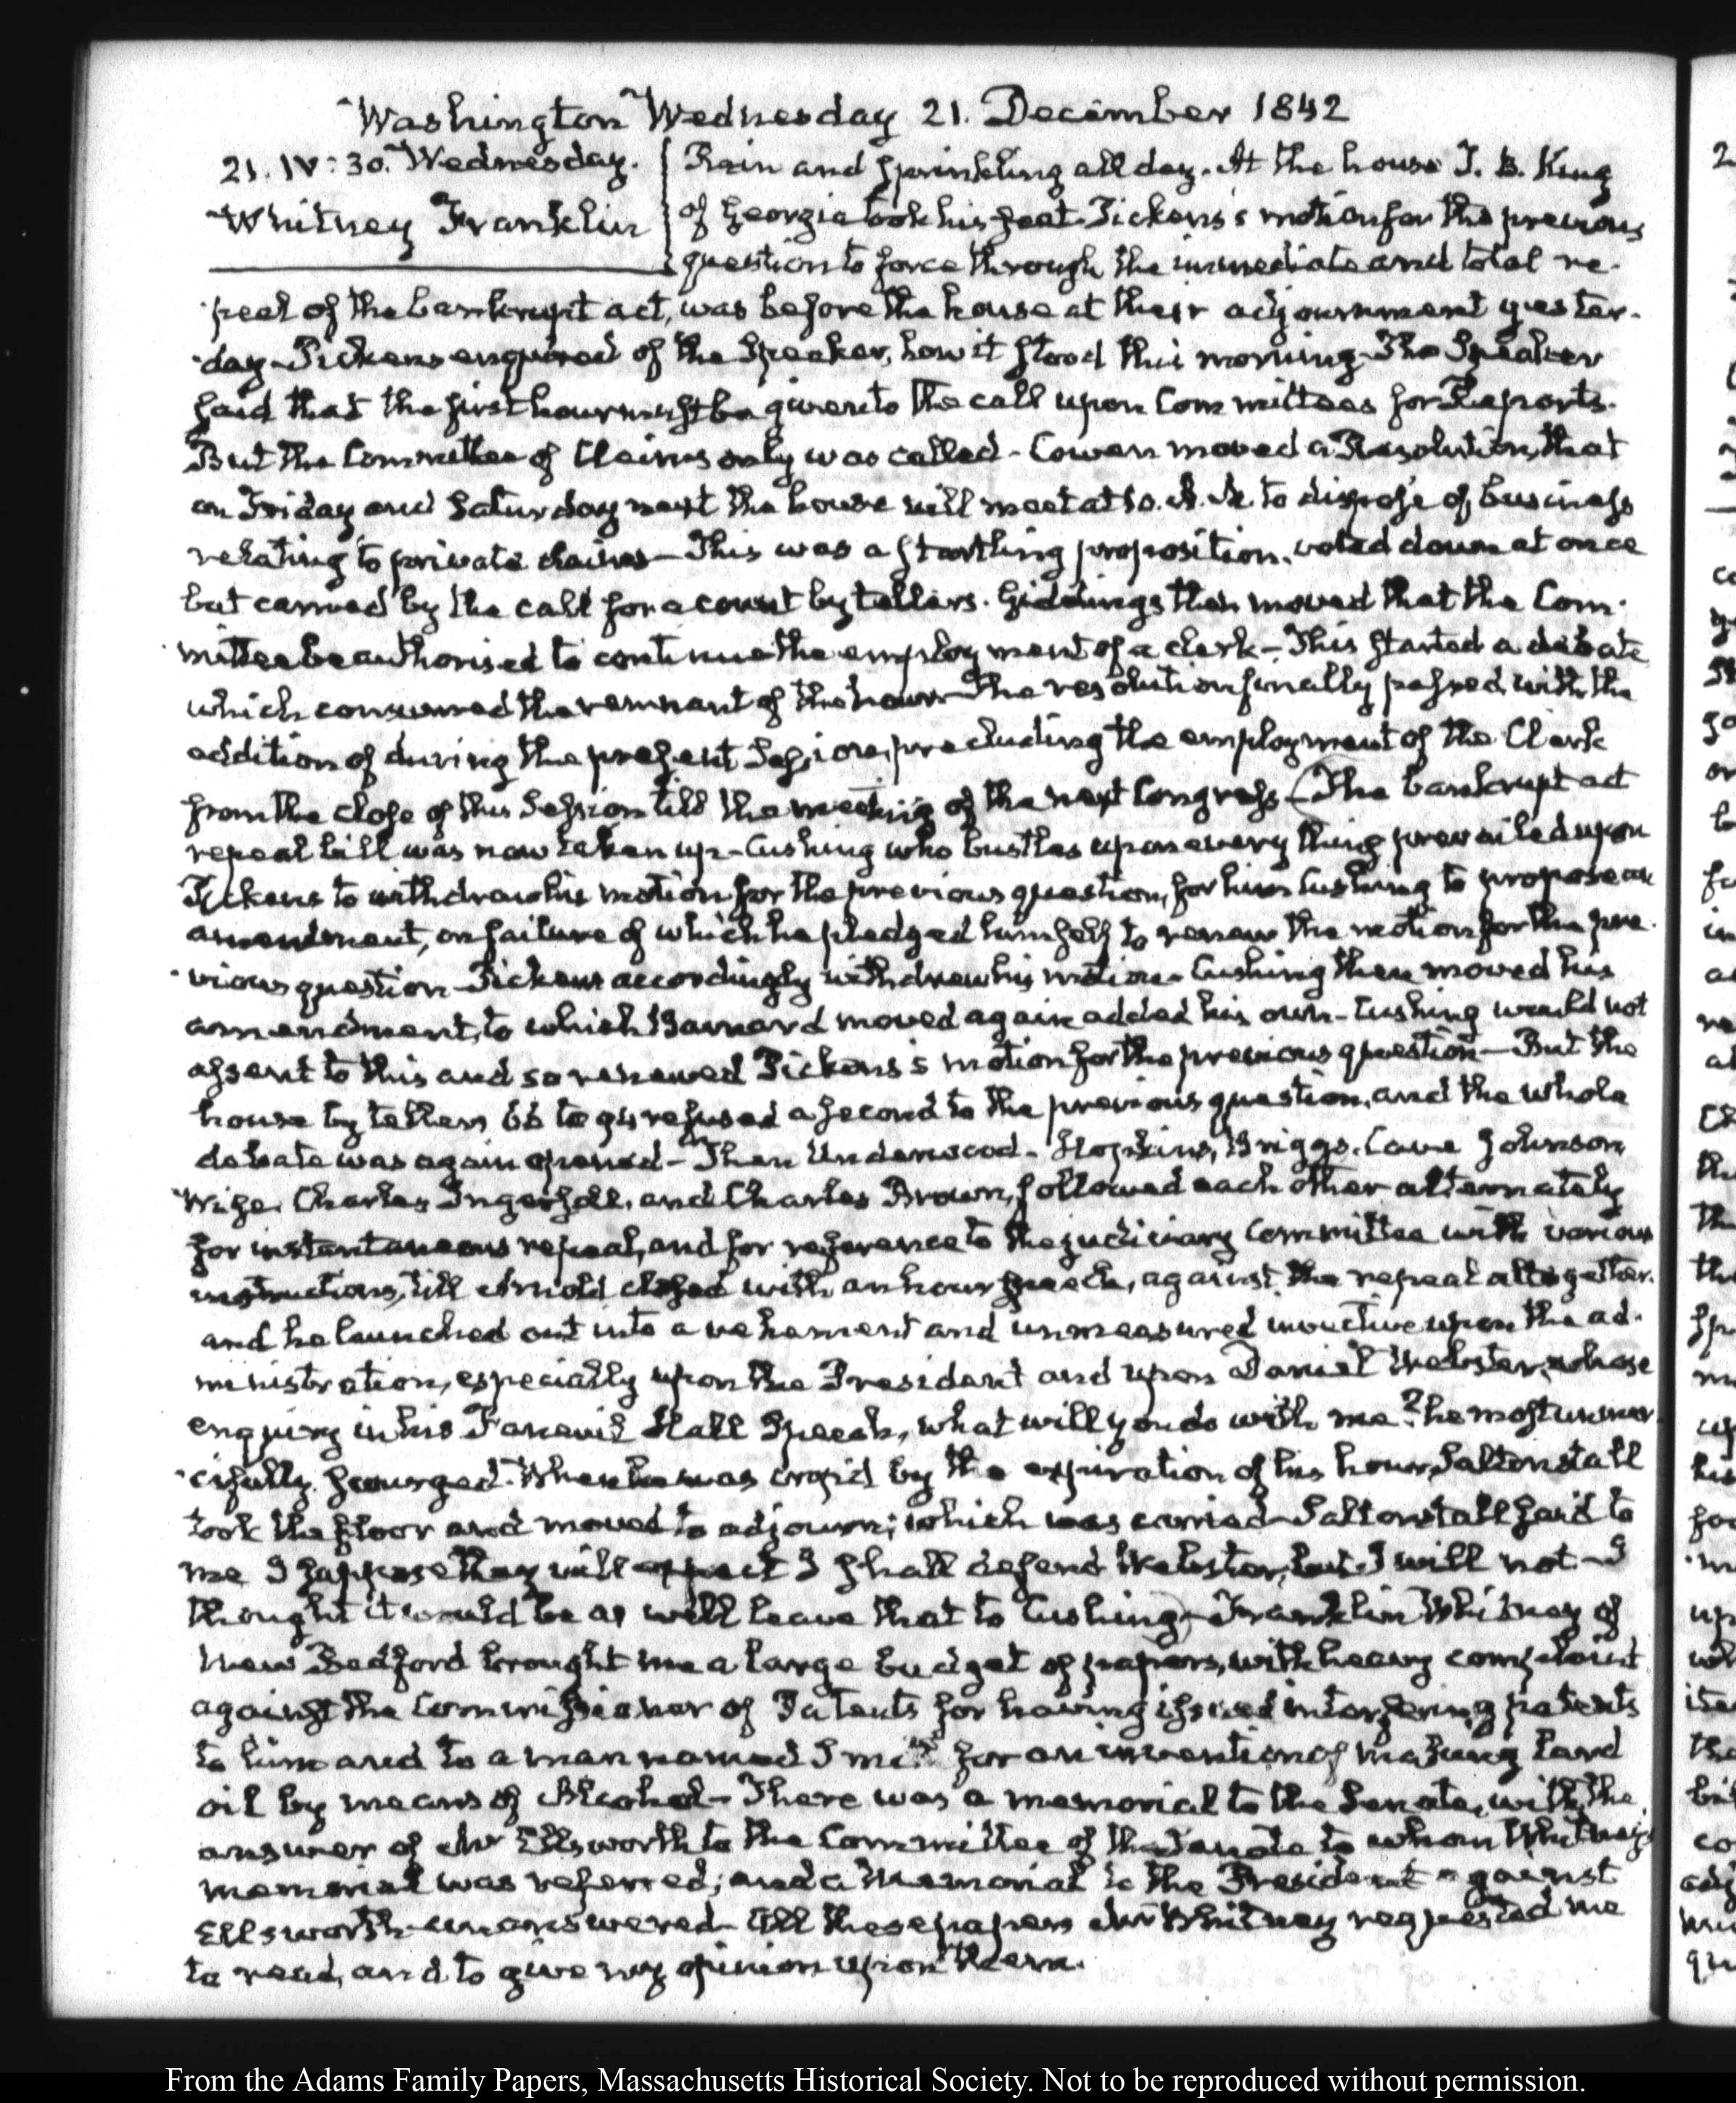 Washington Wednesday 21. December 1842
21. IV: 30. Wednesday.
Whitney Franklin
Rain and sprinkling all day. At the house T. B. King
of Georgia took his seat. Pickens's motion for the previous
question to force through the immediate and total re-
peal of the bankrupt act, was before the house at their adjournment yester-
day. Pickens enquired of the Speaker, how it stood this morning. The Speaker
said that the first hour must be given to the call upon Committees for Reports.
But the Committee of Claims only was called. Cowen moved a Resolution, that
on Friday and Saturday next the house will meet at 10. A.M. to dispose of business
relating to private claims. This was a startling proposition, voted down at once
but carried by the call for a count by tellers. Giddings then moved that the Com-
mittee be authorised to continue the employment of a clerk. This started a debate
which consumed the remnant of the hour. The resolution finally passed, with the
addition of during the present Session, precluding the employment of the Clerk
from the close of this Session till the meeting of the next Congress. (The bankrupt act
repeal bill was now taken up. Cushing who bustles upon every thing prevailed upon
Pickens to withdraw his motion for the previous question, for him Cushing to propose an
amendment, on failure of which he pledged himself to renew the motion for the pre-
vious question. Pickens accordingly withdrew his motion. Cushing then moved his
amendment, to which Barnard moved again added his own. Cushing would not
assent to this and so renewed Pickens's motion for the previous question. But the
house by tellers 66 to 94 refused a second to the previous question, and the whole
debate was again opened. Then Underwood. Hopkins, Briggs. Cave Johnson
Wise. Charles Ingersoll, and Charles Brown, followed each other alternately
for instantaneous repeal, and for reference to the judiciary Committee with various
instructions, till Arnold closed with an hour speech, against the repeal altogether.
and he launched out into a vehement and unmeasured invective upon the ad-
ministration, especially upon the President and upon Daniel Webster, whose
enquiry in his Faneuil Hall Speech, what will you do with me? he most unmer-
cifully scourged. When he was by the expiration of his hour, Saltonstall
took the floor and moved to adjourn; which was carried. Saltonstall said to
me I suppose they will expect I shall defend Webster, but I will not. I
thought it would be as well leave that to Cushing.) Franklin Whitney of
New Bedford brought me a large budget of papers, with heavy complaint
against the Commissioner of Patents for having issued interfering patents
to him and to a man named Smith for an invention of making lard
oil by means of Alcohol. There was a memorial to the Senate, with the
answer of Mr Ellsworth to the Committee of the Senate to whom Whitney's
memorial was referred; and a Memorial to the President against
Ellsworth unanswered. All these papers Mr Whitney requested me
to read, and to give my opinion upon them.
From the Adams Family Papers, Massachusetts Historical Society. Not to be reproduced without permission.